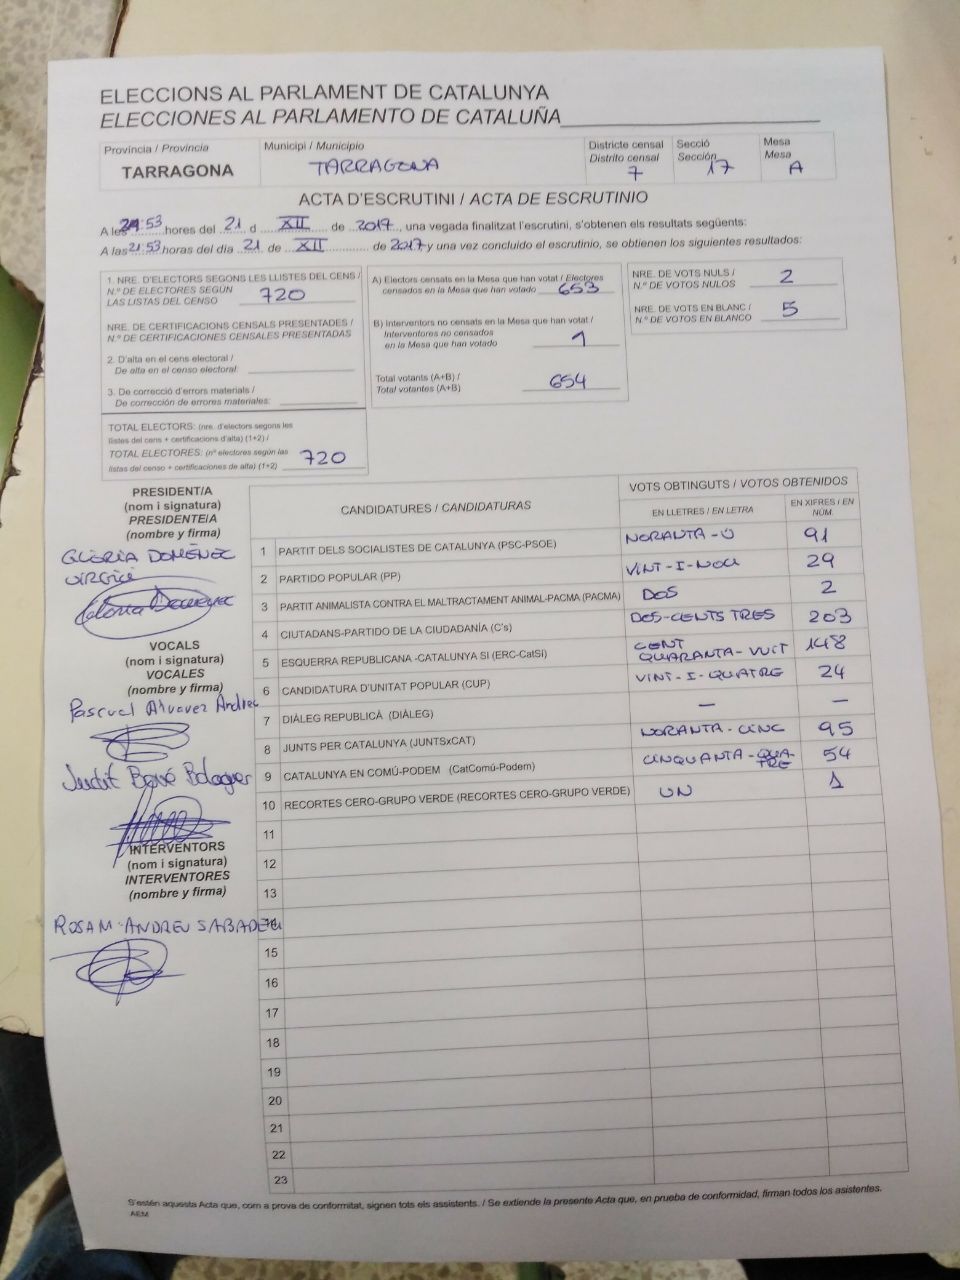 ELECCIONS AL PARLAMENT DE CATALUNYA
ELECCIONES AL PARLAMENTO DE CATALUÑA
Província / Provincia
TARRAGONA
Municipi / Municipio
TARRAGONA
Districte censal
Distrito censal
7
Secció
Sección
17
Mesa
Mesa
A
ACTA D'ESCRUTINI / ACTA DE ESCRUTINIO
A les 21:53 hores del 21 d XII de 2017, una vegada finalitzat l'escrutini, s'obtenen els resultats següents:
A las 21:53 horas del día 21 de XII de 2017 y una vez concluido el escrutinio, se obtienen los siguientes resultados:
1. NRE. D'ELECTORS SEGONS LES LLISTES DEL CENS /
N.º DE ELECTORES SEGÚN
LAS LISTAS DEL CENSO 720
NRE. DE CERTIFICACIONS CENSALS PRESENTADES /
N.º DE CERTIFICACIONES CENSALES PRESENTADAS
2. D'alta en el cens electoral /
De alta en el censo electoral:
3. De correcció d'errors materials /
De corrección de errores materiales:
TOTAL ELECTORS: (nre. d'electors segons les
llistes del cens + certificacions d'alta) (1+2) /
TOTAL ELECTORES: (nº electores según las
listas del censo + certificaciones de alta) (1+2) 720
A) Electors censats en la Mesa que han votat / Electores
censados en la Mesa que han votado 653
B) Interventors no censats en la Mesa que han votat /
Interventores no censados
en la Mesa que han votado 1
Total votants (A+B) /
Total votantes (A+B) 654
NRE. DE VOTS NULS /
N.º DE VOTOS NULOS 2
NRE. DE VOTS EN BLANC /
N.º DE VOTOS EN BLANCO 5
PRESIDENT/A
(nom i signatura)
PRESIDENTE/A
(nombre y firma)
GLÒRIA DOMÈNEC
VIRGILI
VOCALS
(nom i signatura)
VOCALES
(nombre y firma)
Pascual Alvarez Andreu
Judit Bové Balaguer
INTERVENTORS
(nom i signatura)
INTERVENTORES
(nombre y firma)
ROSA M. ANDREU SABADELL
CANDIDATURES / CANDIDATURAS
VOTS OBTINGUTS / VOTOS OBTENIDOS
EN LLETRES / EN LETRA
EN XIFRES / EN NÚM.
1 PARTIT DELS SOCIALISTES DE CATALUNYA (PSC-PSOE) NORANTA-U 91
2 PARTIDO POPULAR (PP) VINT-I-NOU 29
3 PARTIT ANIMALISTA CONTRA EL MALTRACTAMENT ANIMAL-PACMA (PACMA) DOS 2
4 CIUTADANS-PARTIDO DE LA CIUDADANÍA (C's) DOS-CENTS TRES 203
5 ESQUERRA REPUBLICANA -CATALUNYA SI (ERC-CatSí) CENT QUARANTA-VUIT 148
6 CANDIDATURA D'UNITAT POPULAR (CUP) VINT-I-QUATRE 24
7 DIÀLEG REPUBLICÀ (DIÀLEG) — —
8 JUNTS PER CATALUNYA (JUNTSxCAT) NORANTA-CINC 95
9 CATALUNYA EN COMÚ-PODEM (CatComú-Podem) CINQUANTA-QUATRE 54
10 RECORTES CERO-GRUPO VERDE (RECORTES CERO-GRUPO VERDE) UN 1
11
12
13
14
15
16
17
18
19
20
21
22
23
S'estén aquesta Acta que, com a prova de conformitat, signen tots els assistents. / Se extiende la presente Acta que, en prueba de conformidad, firman todos los asistentes.
AEM